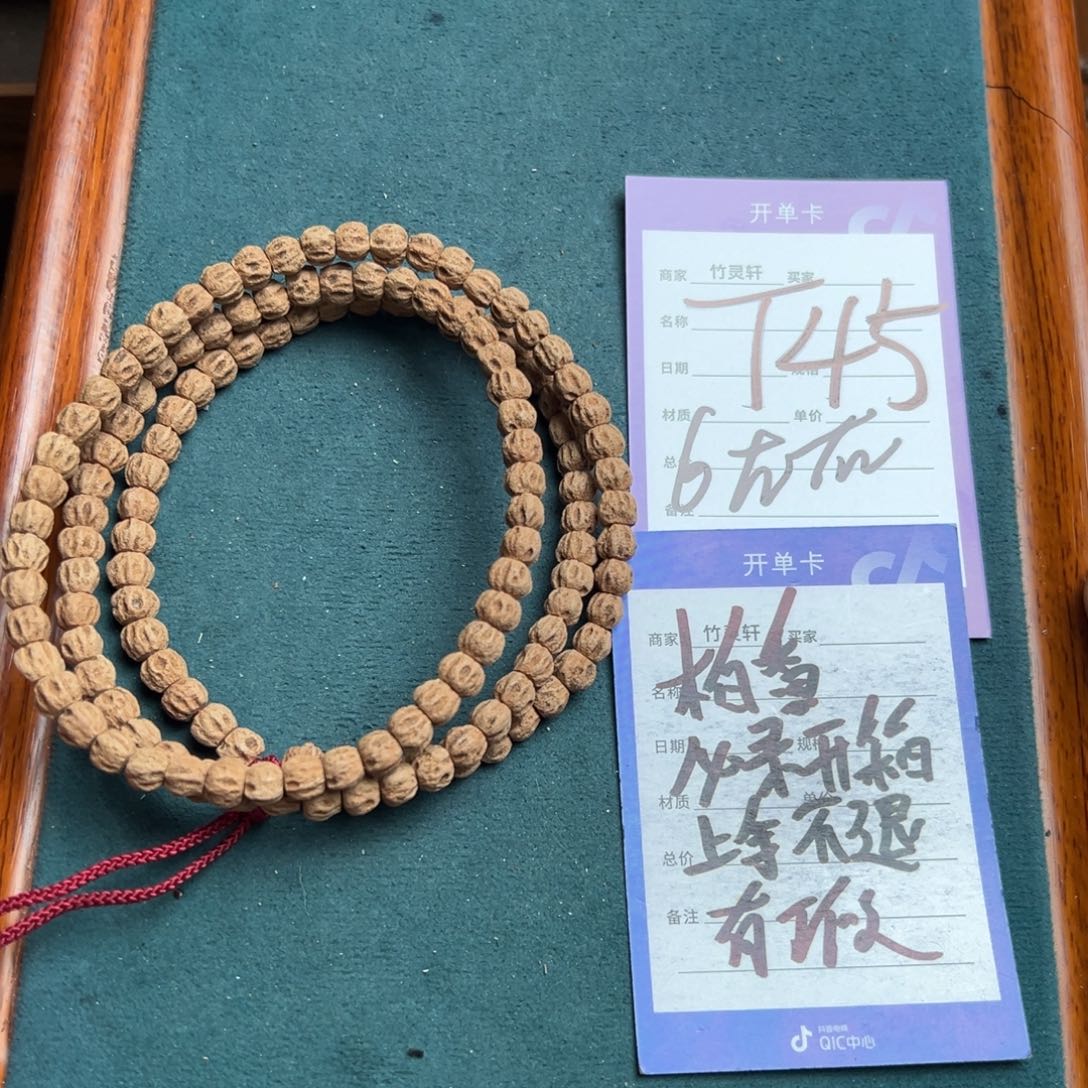 开单卡
商家 竹灵轩 买家
名称
T45
日期
材质 单价
6左右
备注
开单卡
商家 竹灵轩 买家
日期 规格
必录开箱
材质
上手不退
总价
备注
抖音电商
QIC中心